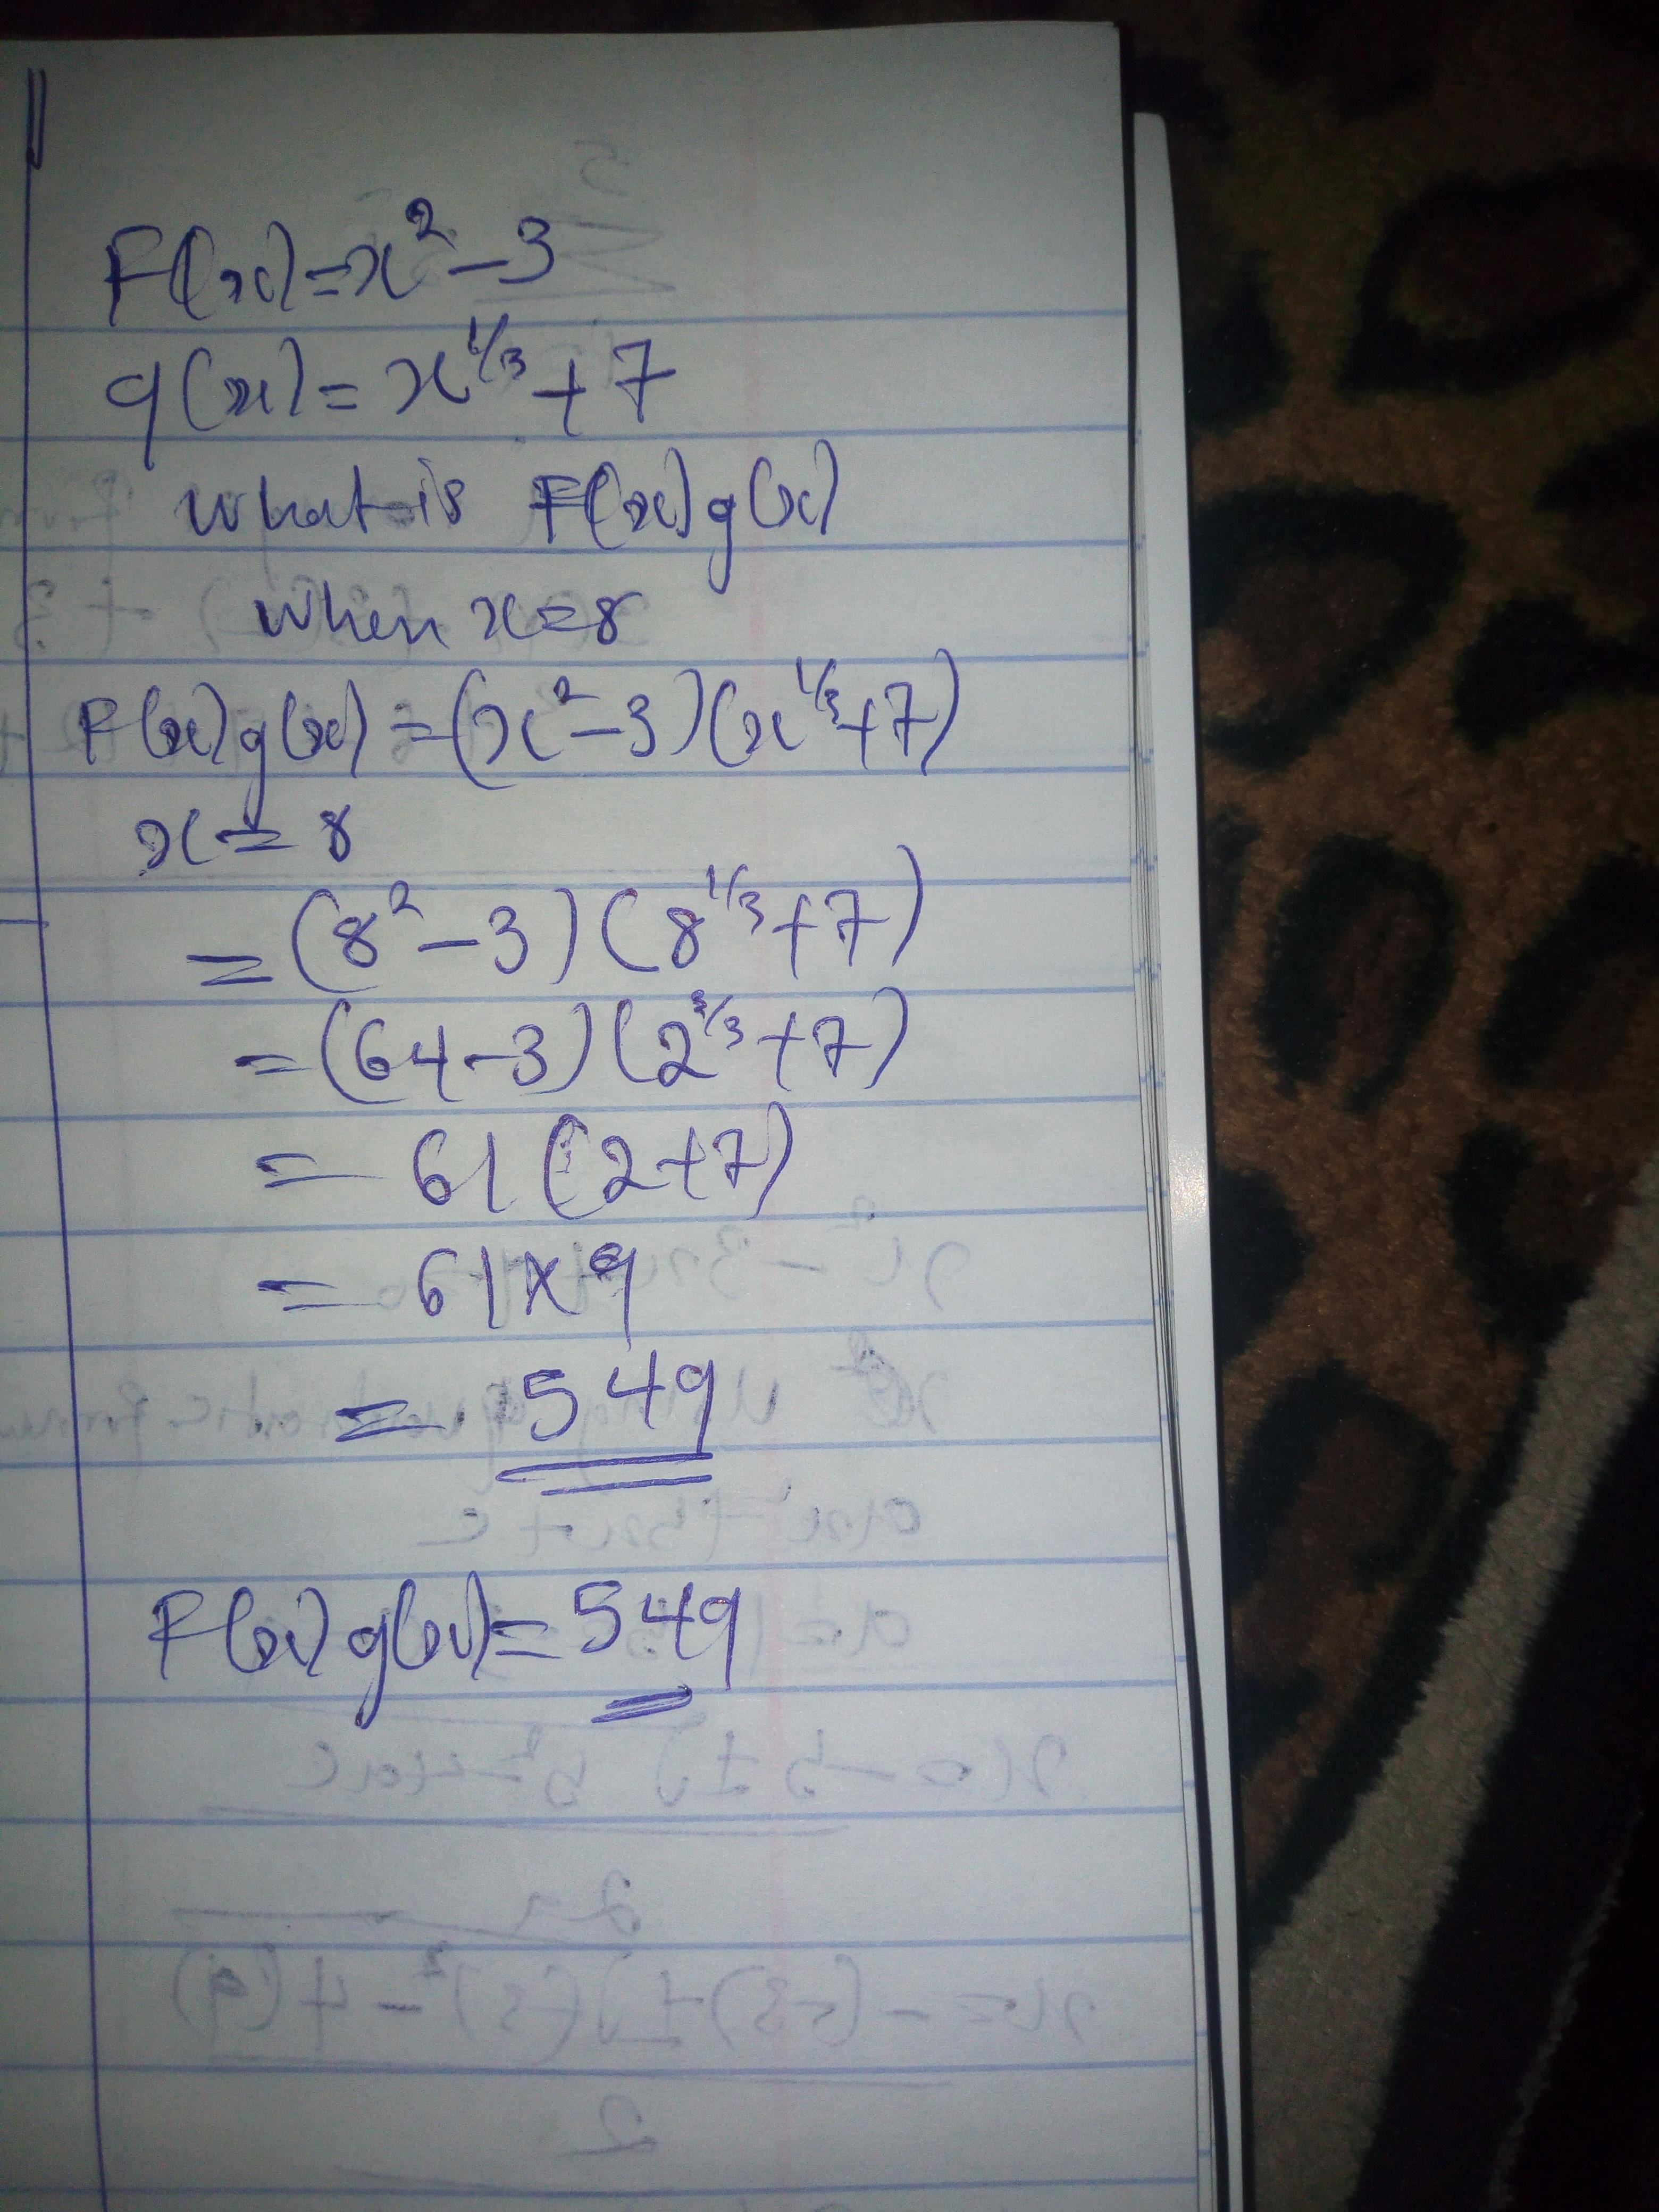 F(x)=x²-3
g(x)=x^1/3+7
what is F(x)g(x)
when x=8
F(x)g(x)=(x²-3)(x^1/3+7)
x=8
=(8²-3)(8^1/3+7)
=(64-3)(2^3/3+7)
=61(2+7)
=61×9
=549
F(x)g(x)=549